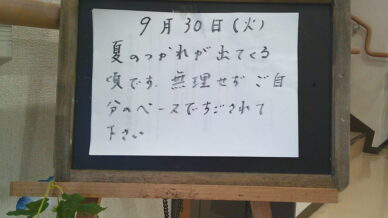 9月30日(火)
夏のつかれが出てくる
頃です.無理せず ご自
分のペースですごされて
下さい